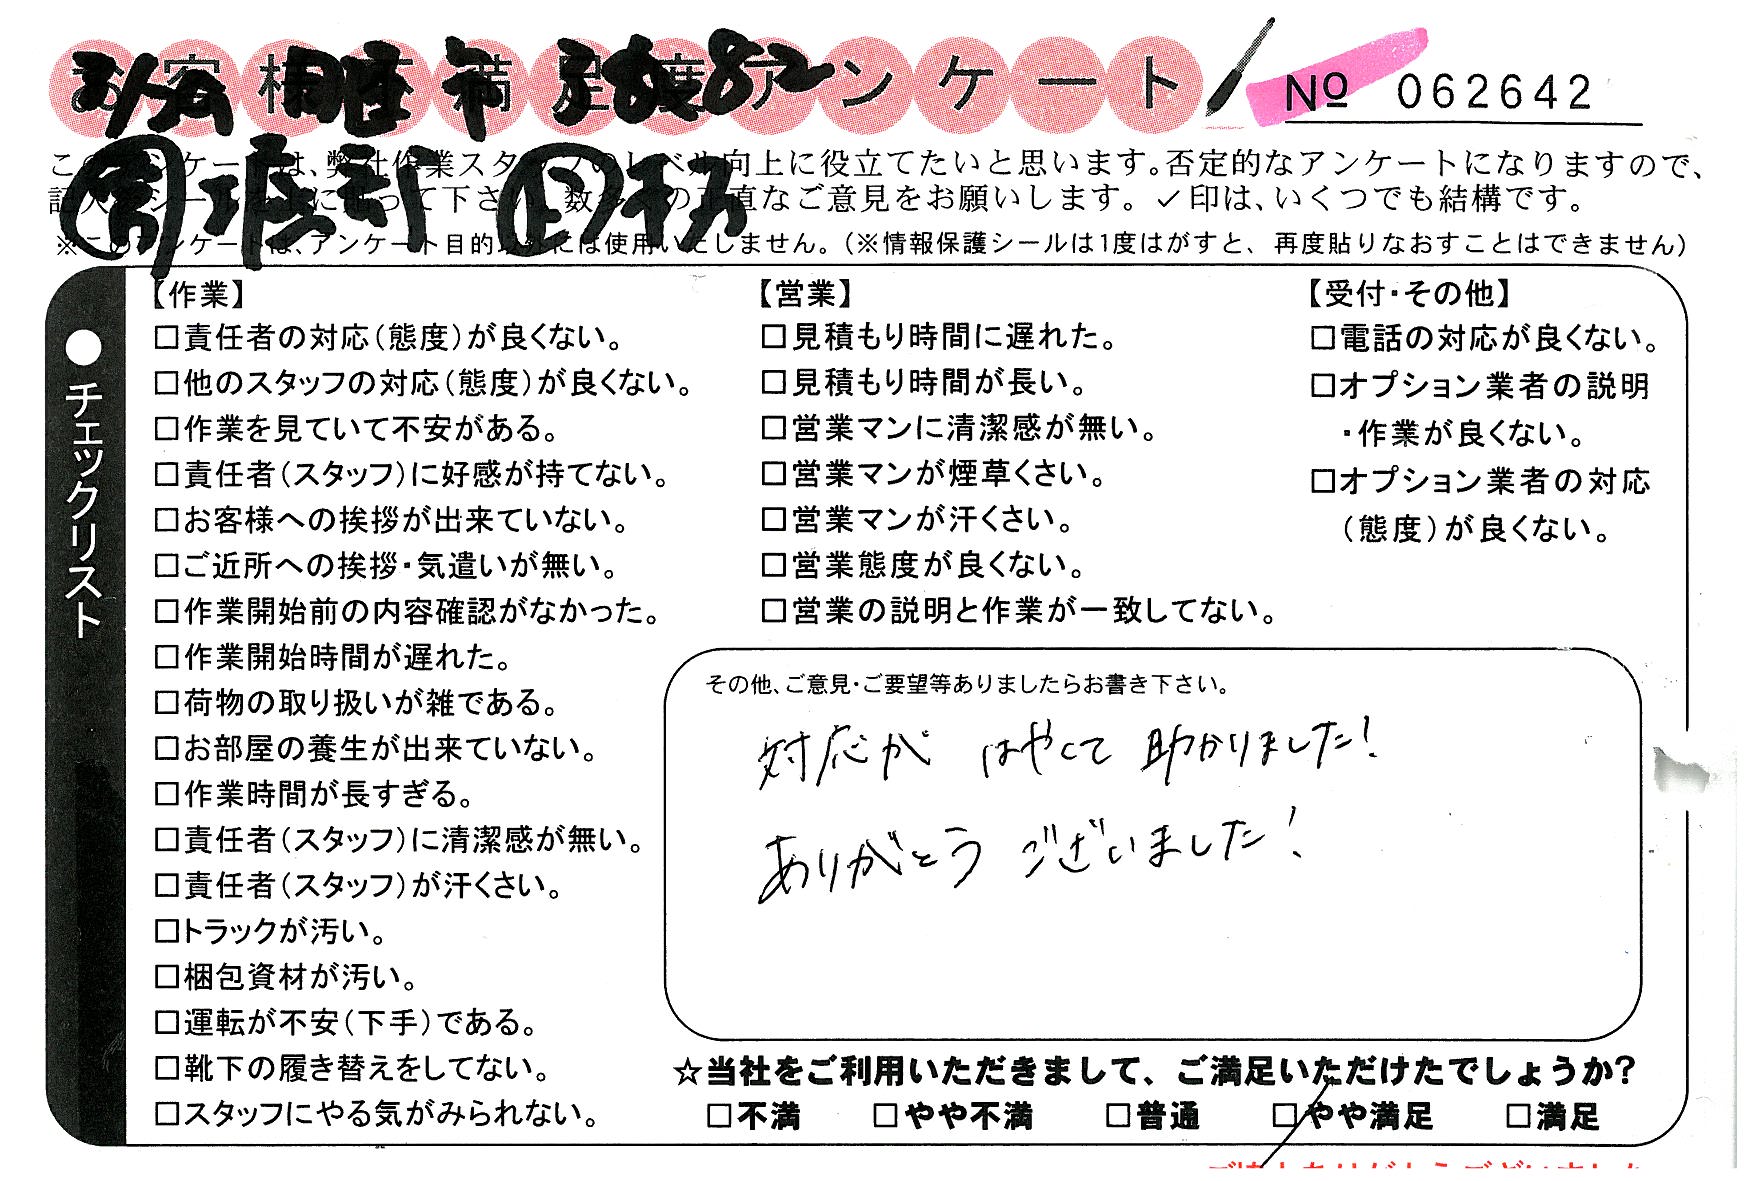 お客様不満足度アンケート
No 062642
このアンケートは、弊社作業スタッフのレベル向上に役立てたいと思います。否定的なアンケートになりますので、
記入シールを 貼って下さい 数多 の正直なご意見をお願いします。✓印は、いくつでも結構です。
※このアンケートは、アンケート目的以外には使用いたしません。(※情報保護シールは1度はがすと、再度貼りなおすことはできません)
●チェックリスト
【作業】
□責任者の対応(態度)が良くない。
□他のスタッフの対応(態度)が良くない。
□作業を見ていて不安がある。
□責任者(スタッフ)に好感が持てない。
□お客様への挨拶が出来ていない。
□ご近所への挨拶・気遣いが無い。
□作業開始前の内容確認がなかった。
□作業開始時間が遅れた。
□荷物の取り扱いが雑である。
□お部屋の養生が出来ていない。
□作業時間が長すぎる。
□責任者(スタッフ)に清潔感が無い。
□責任者(スタッフ)が汗くさい。
□トラックが汚い。
□梱包資材が汚い。
□運転が不安(下手)である。
□靴下の履き替えをしてない。
□スタッフにやる気がみられない。
【営業】
□見積もり時間に遅れた。
□見積もり時間が長い。
□営業マンに清潔感が無い。
□営業マンが煙草くさい。
□営業マンが汗くさい。
□営業態度が良くない。
□営業の説明と作業が一致してない。
【受付・その他】
□電話の対応が良くない。
□オプション業者の説明
・作業が良くない。
□オプション業者の対応
(態度)が良くない。
その他、ご意見・ご要望等ありましたらお書き下さい。
対応が はやくて 助かりました!
ありがとう ございました!
☆当社をご利用いただきまして、ご満足いただけたでしょうか?
□不満 □やや不満 □普通 □やや満足 □満足